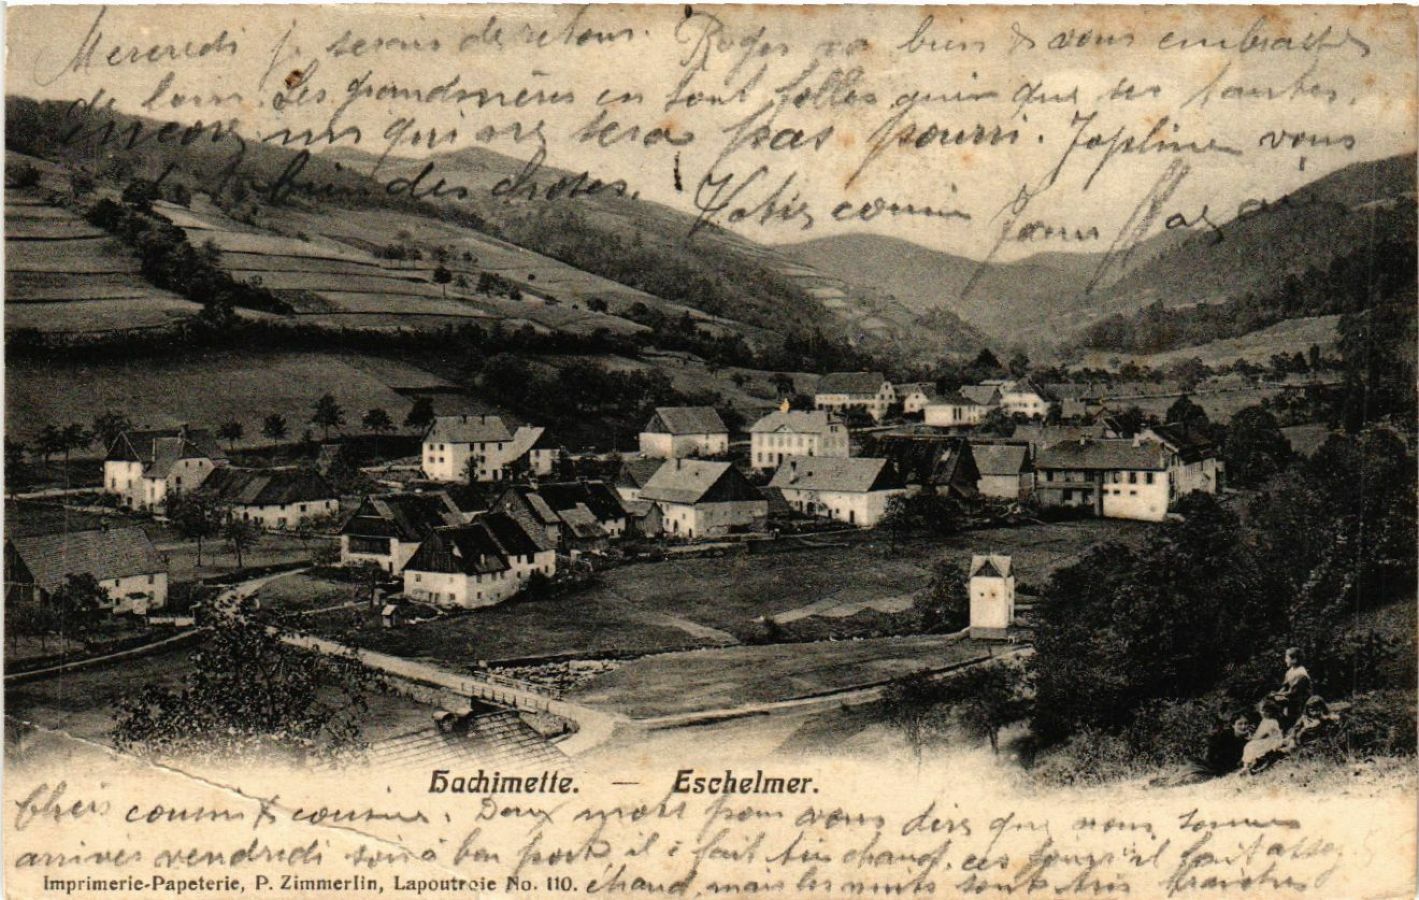 Mercredi je serais de retour. Roger va bien & vous embrasse
de loin. Les grandsmères en sont folles ainsi que ses tantes.
encore un qui ne sera pas pourri. Josphine vous
dit bien des choses. Votre cousin
Hachimette. — Eschelmer.
Chers cousins & cousine. Deux mots pour vous dire que nous sommes
arrivés vendredi soir à bon port, il fait très chaud, ces jours il fait assez
Imprimerie-Papeterie, P. Zimmerlin, Lapoutroie No. 110. chaud, mais les nuits sont très fraiches